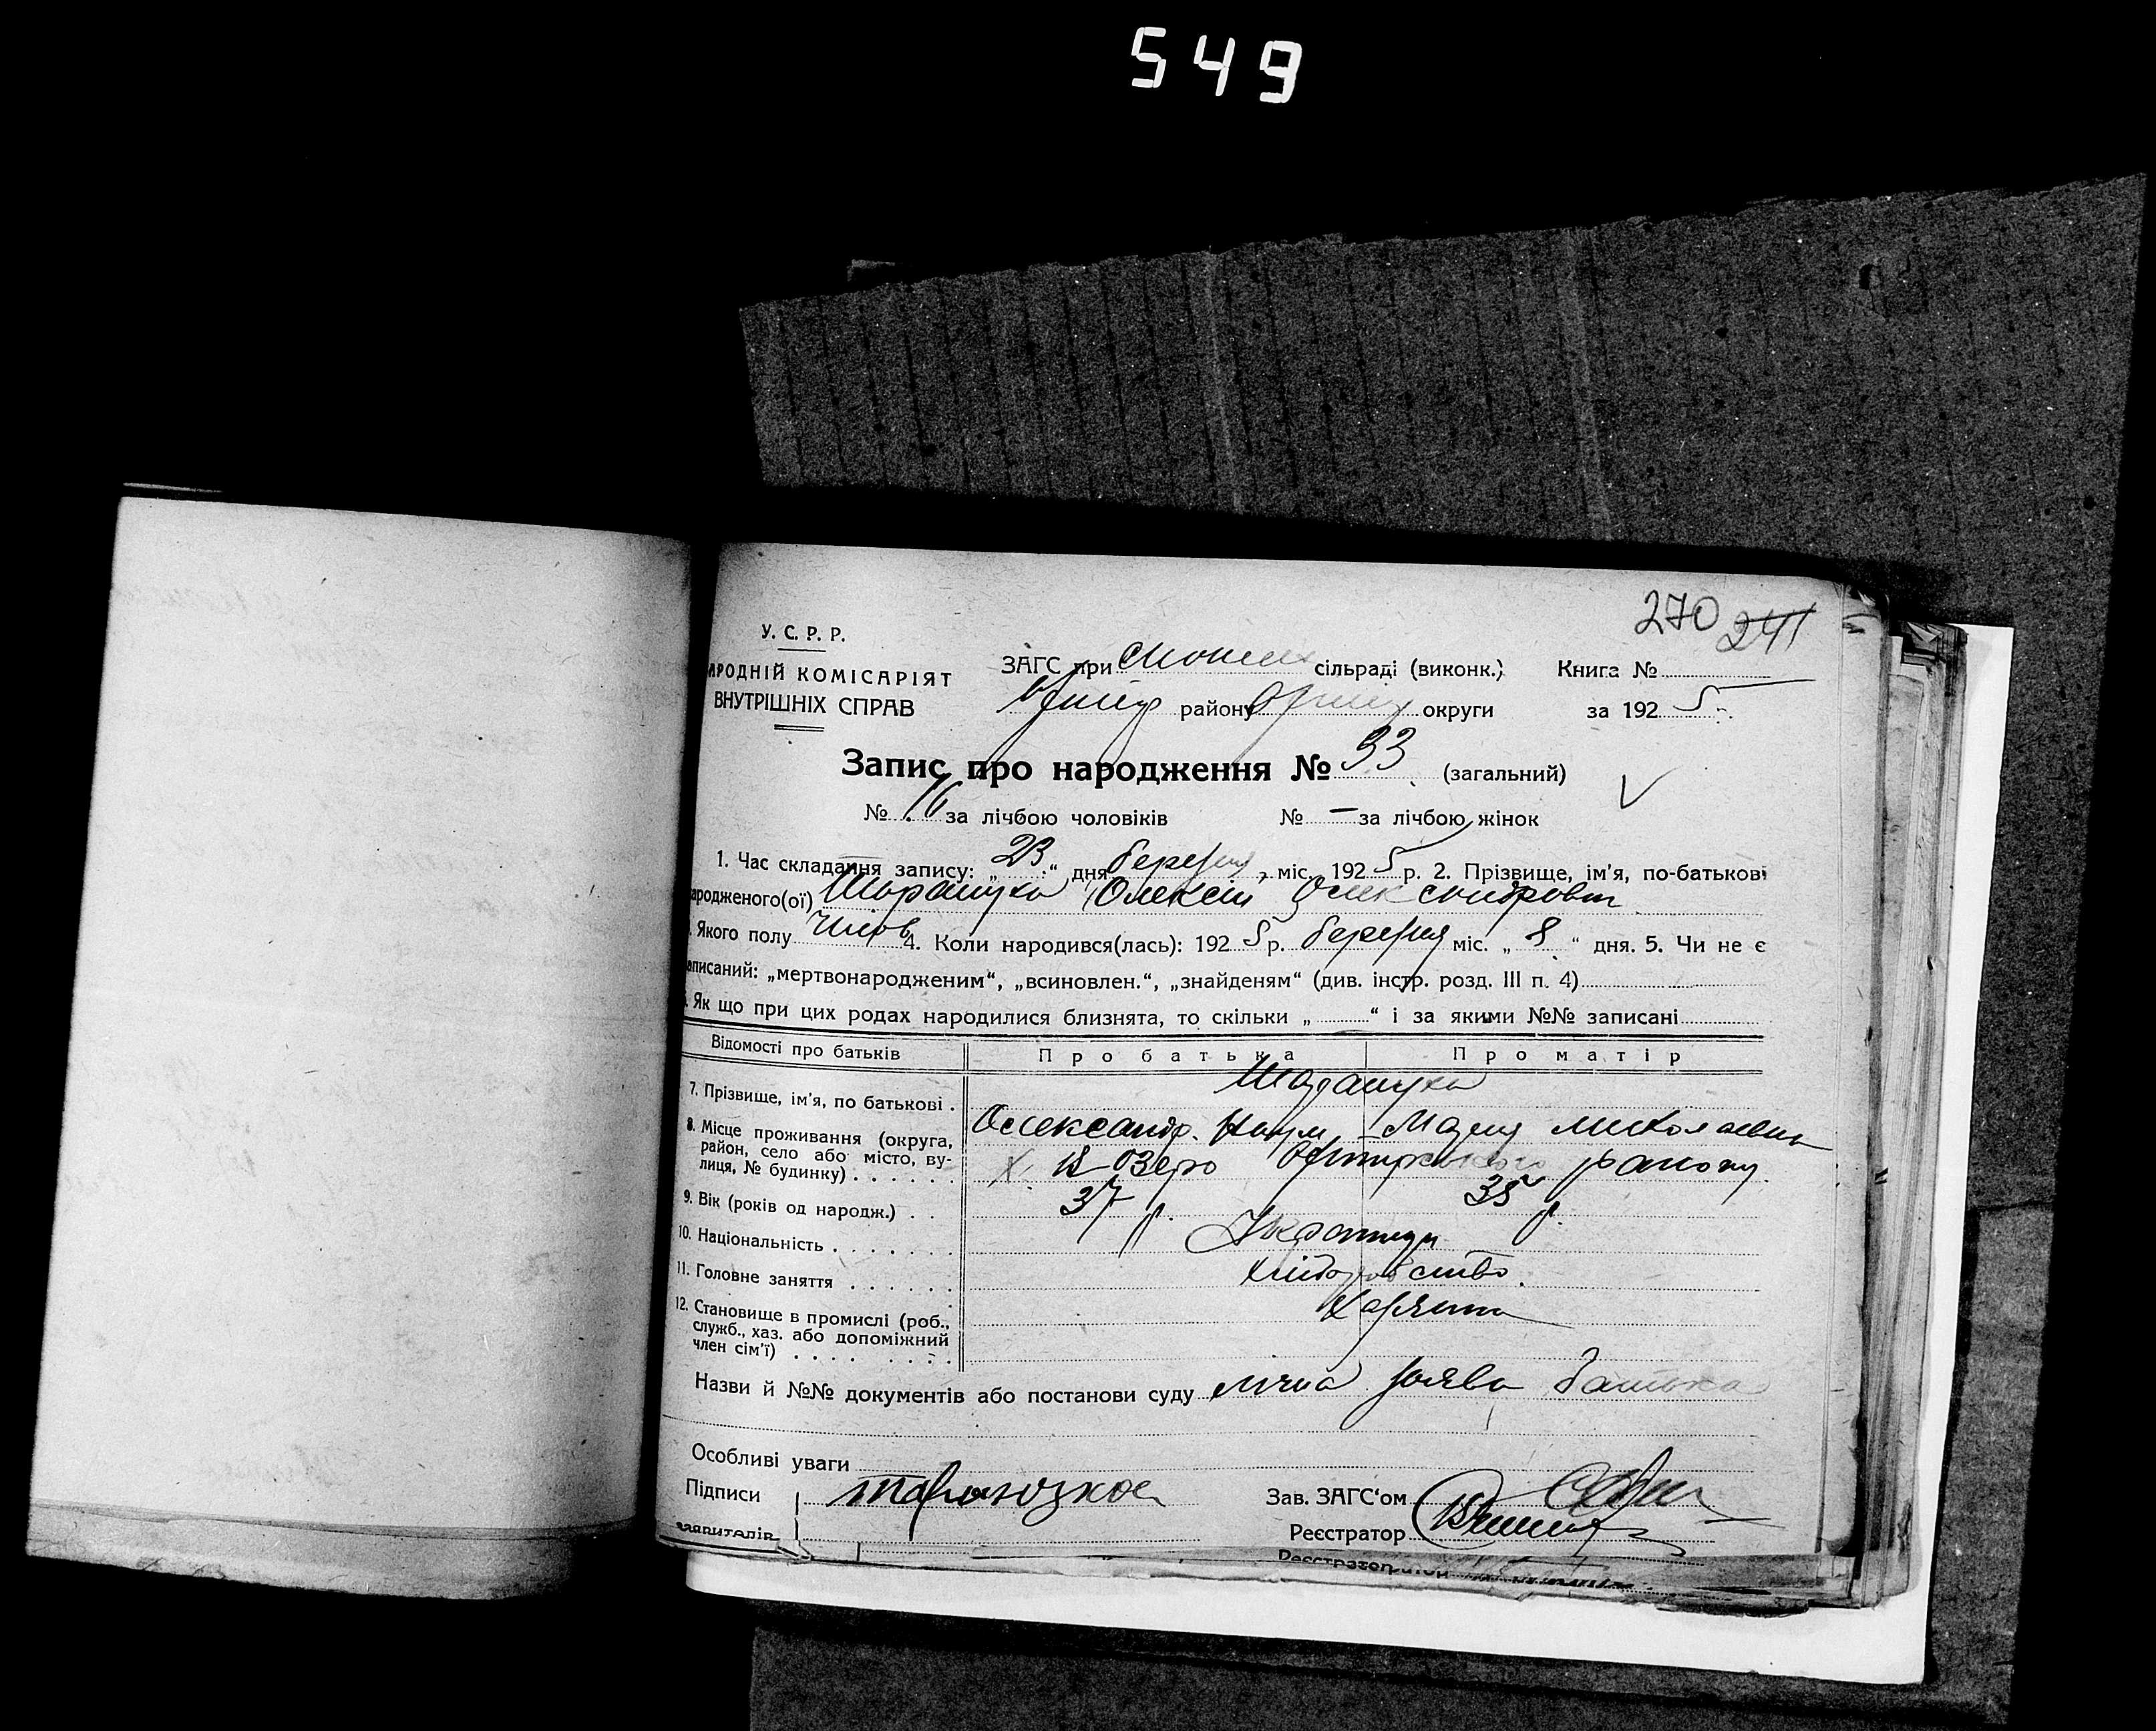 549
270 241
У. С. Р. Р.
АРОДНІЙ КОМІСАРІЯТ
ВНУТРІШНІХ СПРАВ
ЗАГС при сільраді (виконк.) Книга №
району округи за 192 5
Запис про народження № 33 (загальний)
№ 16 за лічбою чоловіків № — за лічбою жінок
1. Час складання запису: „ 23 “ дня березня міс. 192 5 р. 2. Прізвище, ім'я, по-батькові
ародженого(ої) Олексій Олександрович
Якого полу Чолов 4. Коли народився(лась): 192 5 р. березня міс. „ 8 “ дня. 5. Чи не є
аписаний: „мертвонародженим“, „всиновлен.“, „знайденям“ (див. інстр. розд. III п. 4)
Як що при цих родах народилися близнята, то скільки „ “ і за якими №№ записані
Відомості про батьків Про батька Про матір
7. Прізвище, ім'я, по батькові .
Олександр Наум Мария Миколаевна
8. Місце проживання (округа,
район, село або місто, ву-
лиця, № будинку) . . . . . . х. Озеро району
9. Вік (років од народж.) . . 37 р. 35 р.
10. Національність . . . . . . . Українці
11. Головне заняття . . . . . . хліборобство
12. Становище в промислі (роб.,
служб., хаз. або допоміжний
член сім'ї) . . . . . . . .
Назви й №№ документів або постанови суду лична заява батька
Особливі уваги
Підписи Зав. ЗАГС'ом
заявителів Реєстратор
Реєстратор